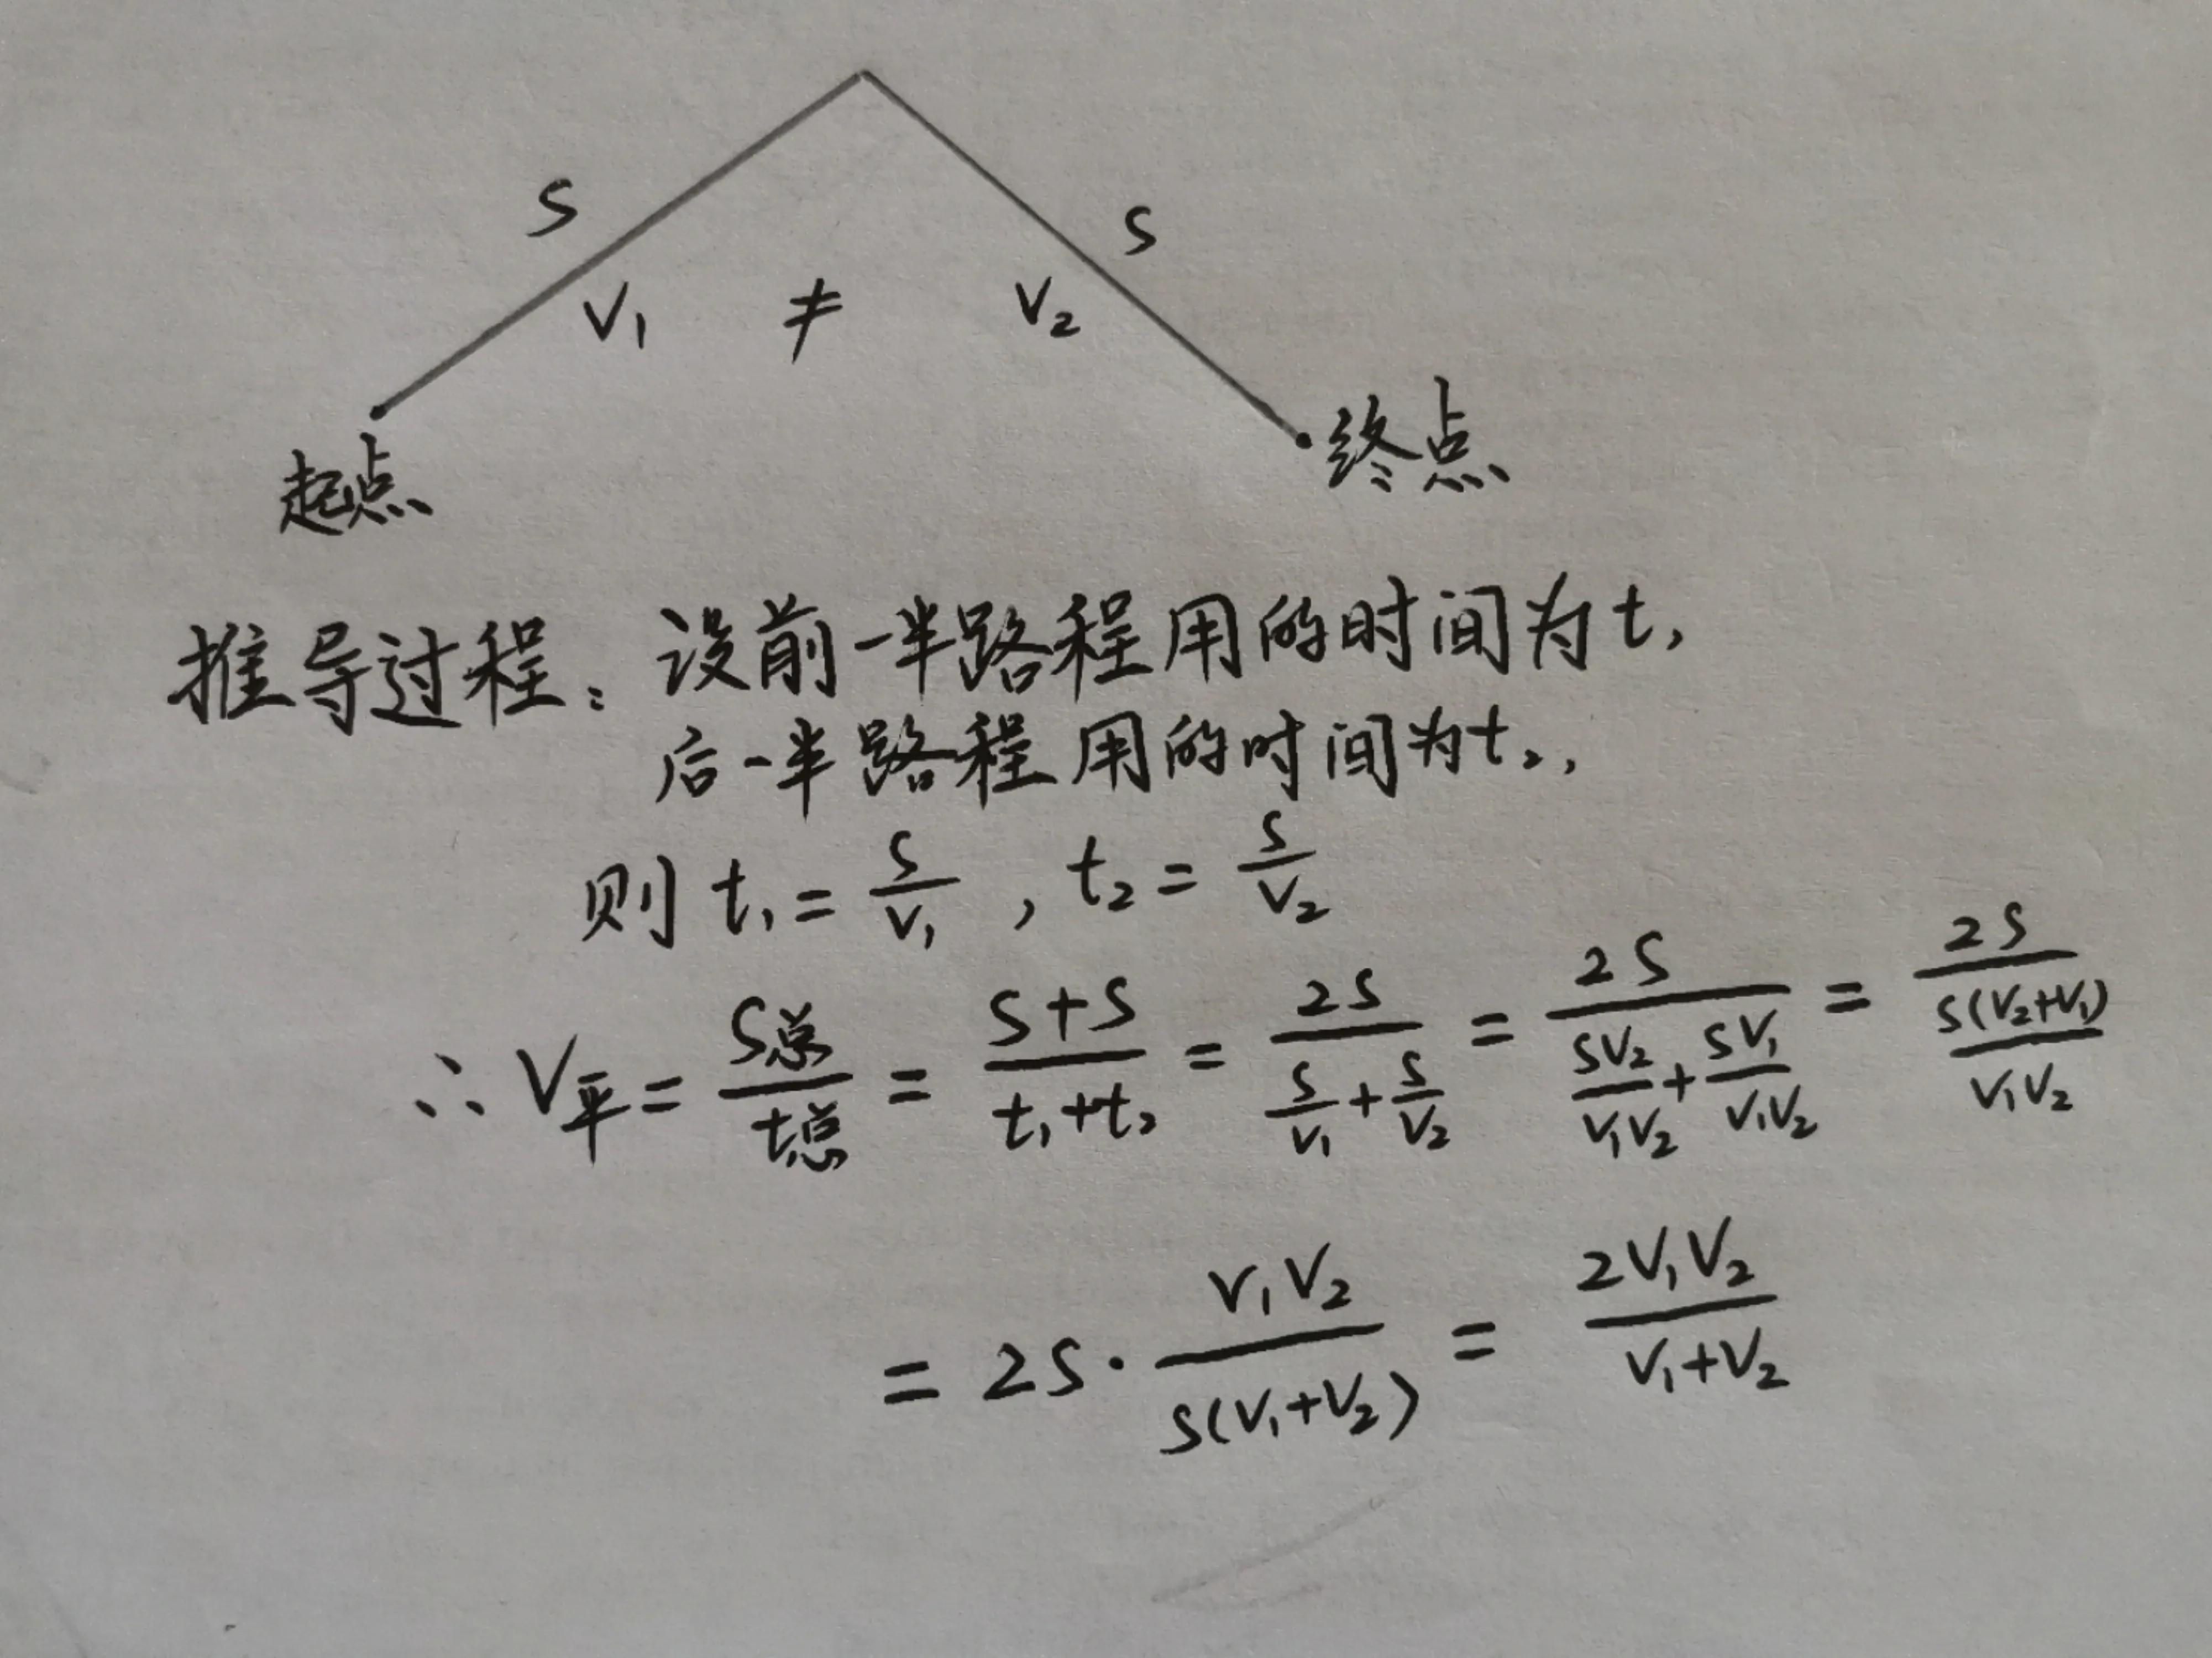 S S
V₁ ≠ V₂
起点 终点
推导过程：设前一半路程用的时间为t₁
后一半路程用的时间为t₂，
则 t₁ = S/V₁ , t₂ = S/V₂
∴ V平 = S总/t总 = (S+S)/(t₁+t₂) = 2S/(S/V₁ + S/V₂) = 2S/(SV₂/V₁V₂ + SV₁/V₁V₂) = 2S/(S(V₂+V₁)/V₁V₂)
= 2S · V₁V₂/S(V₁+V₂) = 2V₁V₂/(V₁+V₂)